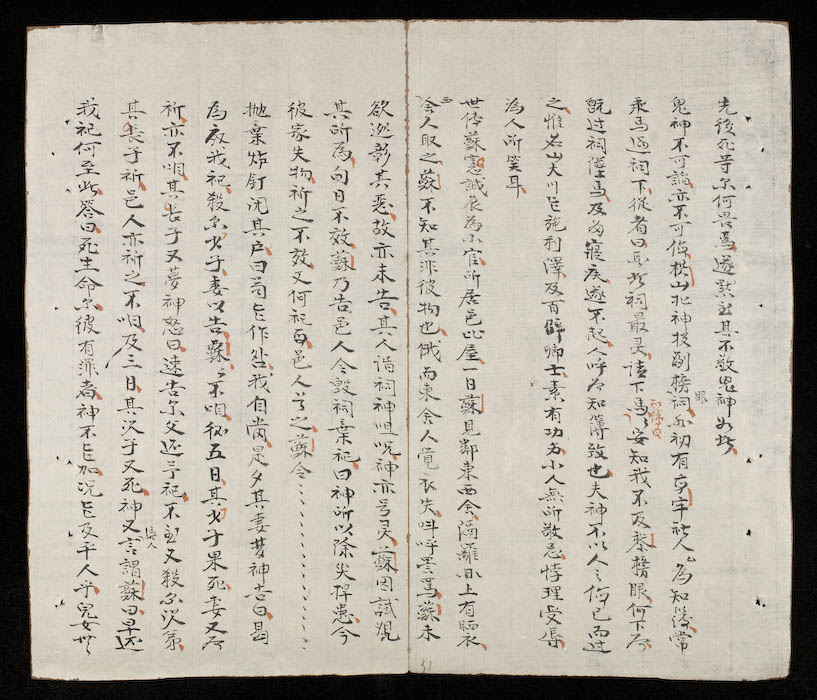 先後死等尔何畏焉遂默然其不敬鬼神如此
鬼神不可謟亦不可侮桃山社神投副榜祠外初有亭宇社人為知簿常
乗馬過祠下従者曰此祠最灵請下馬安知我不及黎榜眼何下為
既过祠墜馬及為寢疾遂不起人呼為知簿致也夫神不以人之侮已而过
之惟名山大川能施利澤及百辟卿士素有功为小人無所敬忌悖理受辱
為人所笑耳
世传蘇憲誠長為小官所居邑比屋一日蘇見鄰東西舍酒籬上有晒衣
西舍人取之蘇不知其非彼物也俄而東舍人覺衣失呌呼詈罵蘇未
欲迯彰其惡故亦未告其人詣祠神咀呪神亦号灵蘇因試覌
其所為旬日不效蘇乃告邑人令毁祠棄祀曰神所以除灾捍患今
彼家失物祈之不效又何祀邑人之蘇令
抛棄釘闭其户曰茍能作我自當是夕其妻梦神告曰曷
為廢我祀殺尔少子妻以告蘇不听後五日其少子果死妻又為
祈亦不听其長子又夢神怒曰速告尔父还吾祀不然又殺尔次弟
其長子祈邑人亦祈之不听及三日其次子又死神又言謂蘇曰早还
我祀何至此答曰死生命尔彼有罪者神不能加况能及平人乎兒女無